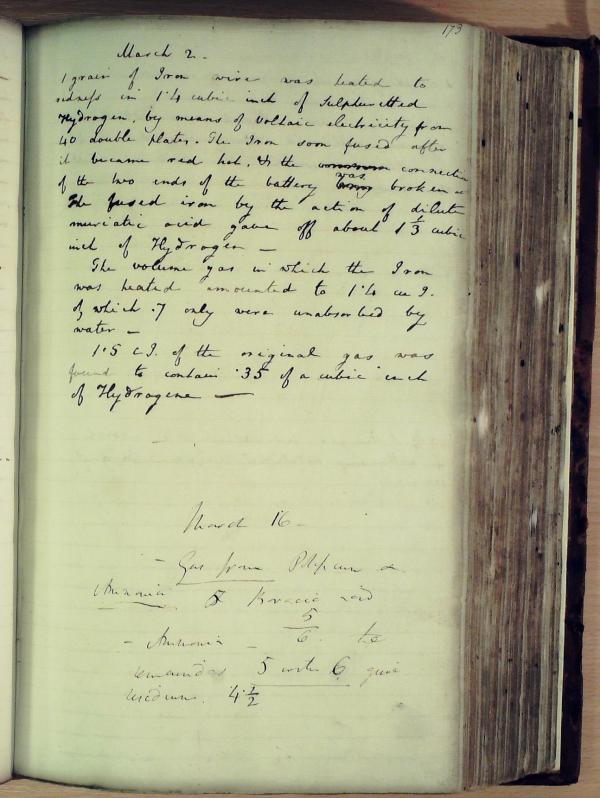 173
March 2 -
1 grain of Iron wire was heated to
redness in 1.4 cubic inch of Sulphuretted
Hydrogen, by means of Voltaic electricity from
40 double plates. The Iron soon fused after
it became red hot, & the connection
was
of the two ends of the battery broken
The fused iron by the action of dilute
muriatic acid gave off about 1 1/3 cubic
inch of Hydrogen —
The volume gas in which the Iron
was heated amounted to 1.4 cu I.
of which .7 only were unabsorbed by
water —
1.5 c I. of the original gas was
found to contain .35 of a cubic inch
of Hydrogene —
March 16 -
- Gas from
Ammonia & Boracic acid
5
- Ammonia - 6. the
remainder 5 with 6 give
residuum. 4 1/2